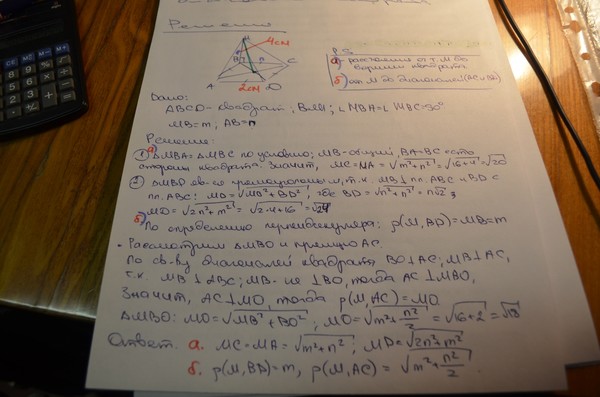 Решение
4см
M
B
C
A
D
2см
P.S.
а) расстояния от т. М до вершин квадрата
б) от М до диагоналей (AC и BD)
Дано:
ABCD - квадрат; ∠MBA = ∠MBC = 90°
MB = m; AB = n
Решение:
① а) ΔMBA = ΔMBC по условию; MB - общий, BA = BC = это
стороны квадрата. Значит, MC = MA = √m²+n² = √16+4 = √20
2) ΔMBD яв-ся прямоугольным, т.к. MB ⊥ пл. ABC и BD ⊂
пл. ABC: MD = √MB²+BD², где BD = √n²+n² = n√2;
MD = √2n²+m² = √2·4+16 = √24
б) По определению перпендикуляра: ρ(M, BD) = MB = m
• Рассмотрим ΔMBO и прямую AC.
По св-ву диагоналей квадрата BO ⊥ AC; MB ⊥ AC,
т.к. MB ⊥ ABC; MB ⊥ BO, тогда AC ⊥ MBO,
Значит, AC ⊥ MO, тогда ρ(M, AC) = MO
ΔMBO: MO = √MB²+BO²; MO = √m²+n²/2 = √16+2 = √18
Ответ: а. MC = MA = √m²+n²; MD = √2n²+m²
б. ρ(M, BD) = m, ρ(M, AC) = √m²+n²/2.